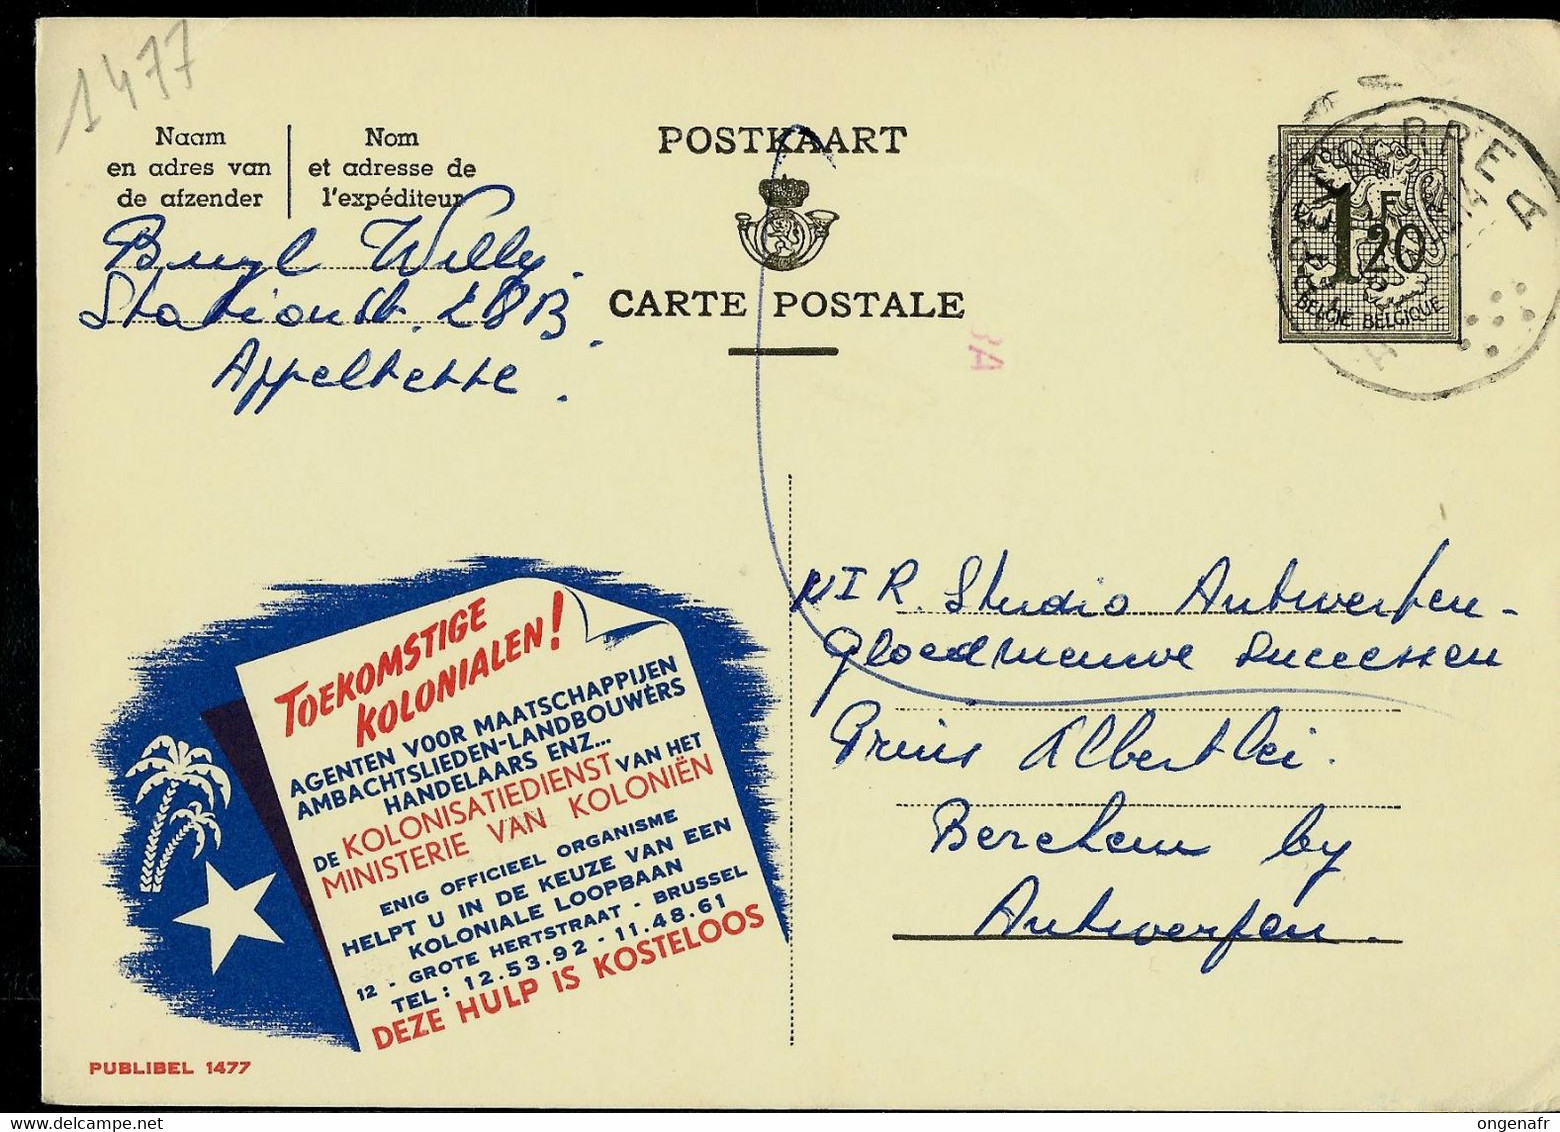 1477
Naam
en adres van
de afzender
Nom
et adresse de
l'expéditeur
Buyl Willy.
Stationstr. 28B.
Appelterre.
POSTKAART
CARTE POSTALE
1F20
BELGIE BELGIQUE
NIR. Studio Antwerpen-
Gloednieuwe Successen
Prins Albertlei.
Berchem by
Antwerpen.
TOEKOMSTIGE
KOLONIALEN!
AGENTEN VOOR MAATSCHAPPIJEN
AMBACHTSLIEDEN-LANDBOUWERS
HANDELAARS ENZ...
DE KOLONISATIEDIENST VAN HET
MINISTERIE VAN KOLONIËN
ENIG OFFICIEEL ORGANISME
HELPT U IN DE KEUZE VAN EEN
KOLONIALE LOOPBAAN
12 - GROTE HERTSTRAAT - BRUSSEL
TEL: 12.53.92 - 11.48.61
DEZE HULP IS KOSTELOOS
PUBLIBEL 1477
ongenafr